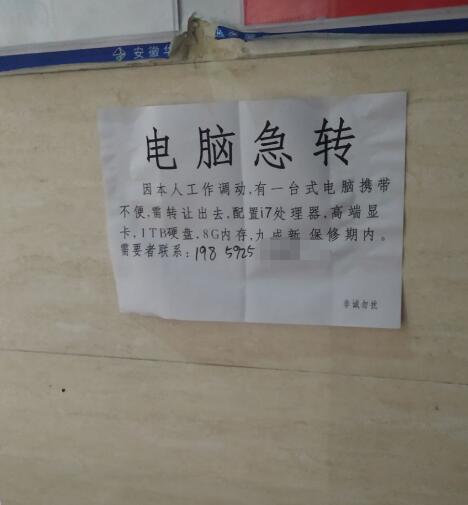 安徽华
电脑急转
因本人工作调动,有一台式电脑携带
不便,需转让出去,配置i7处理器,高端显
卡,1TB硬盘,8G内存,九成新 保修期内。
需要者联系: 198 5925
非诚勿扰